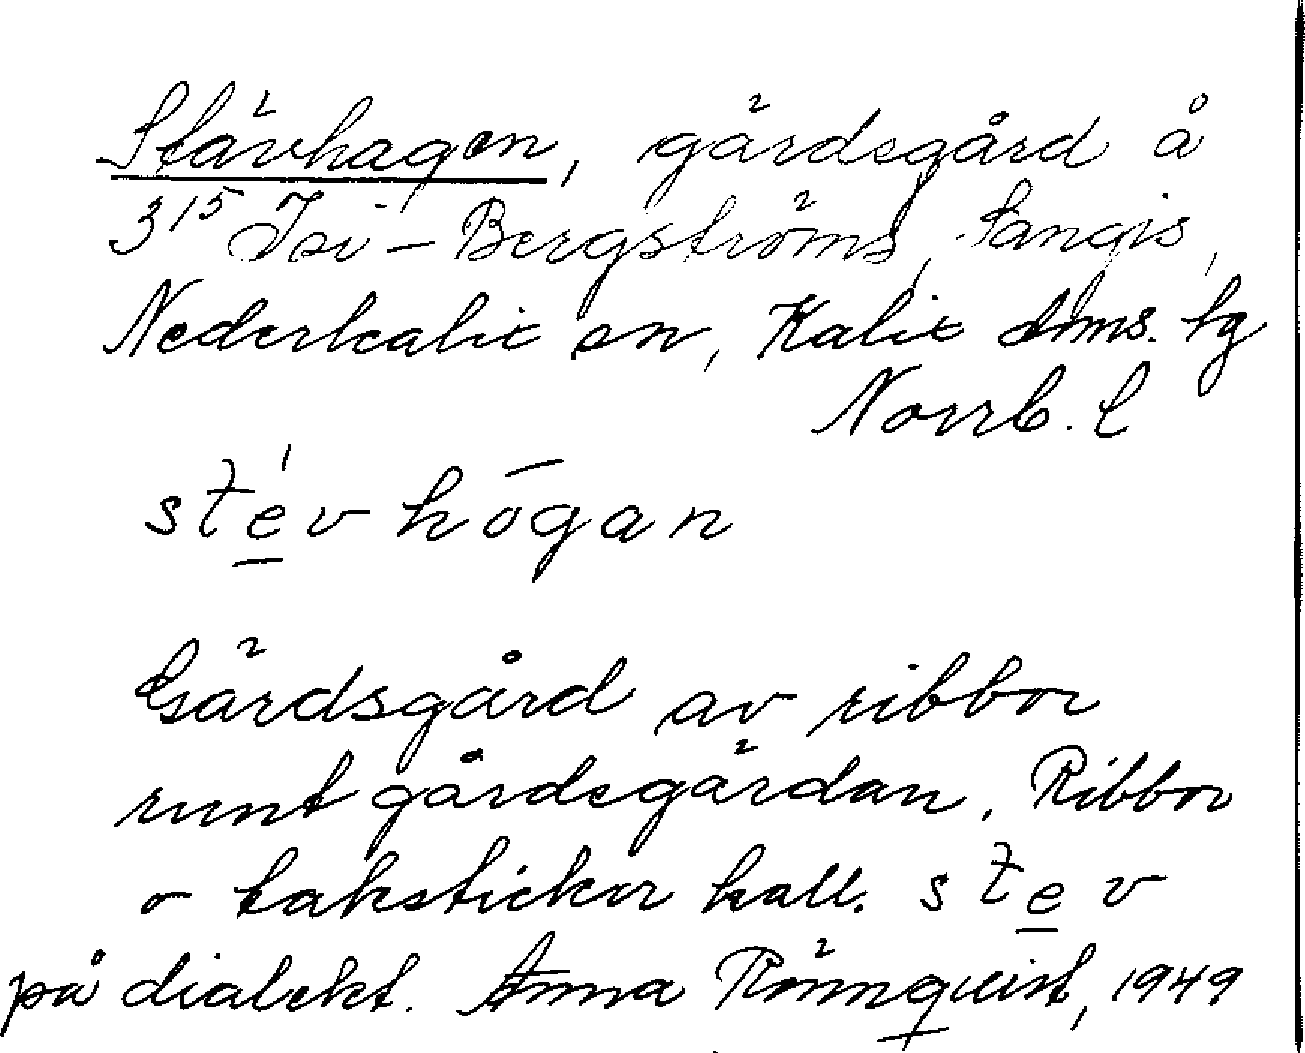 Stävhagen, gärdsgård å
315 Isi-Bergströms, Sangis,
Nederkalix sn, Kalix dms. tg
Norrb. l
stév hōgan
Gärdsgård av ribbor
runt gårdsgärdan. Ribbor
o takstickor kall. stev
på dialekt. Anna Rönnqvist, 1949